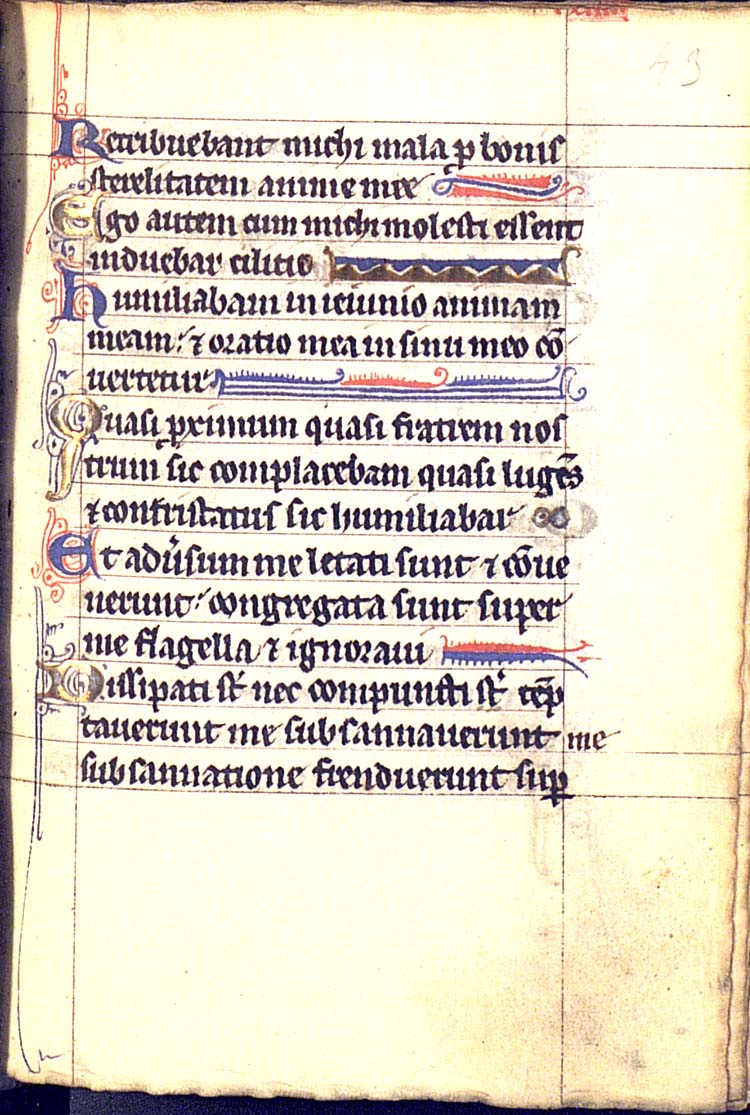 43
Retribuebant michi mala ꝓ bonis
sterelitatem anime mee
Ego autem cum michi molesti essent
induebar cilitio
humiliabam in ieiunio animam
meam: ⁊ oratio mea in sinu meo cō
uertetur
Quasi ꝓximum quasi fratrem nos
trum sic complacebam quasi lugēs
⁊ contristatus sic humiliabar
Et adu̾sum me letati sunt ⁊ cōue
nerunt: congregata sunt super
me flagella ⁊ ignoraui
Dissipati st̄ nec compuncti st̄ tēp
tauerunt me subsannauerunt me
subsannatione frenduerunt suꝑ